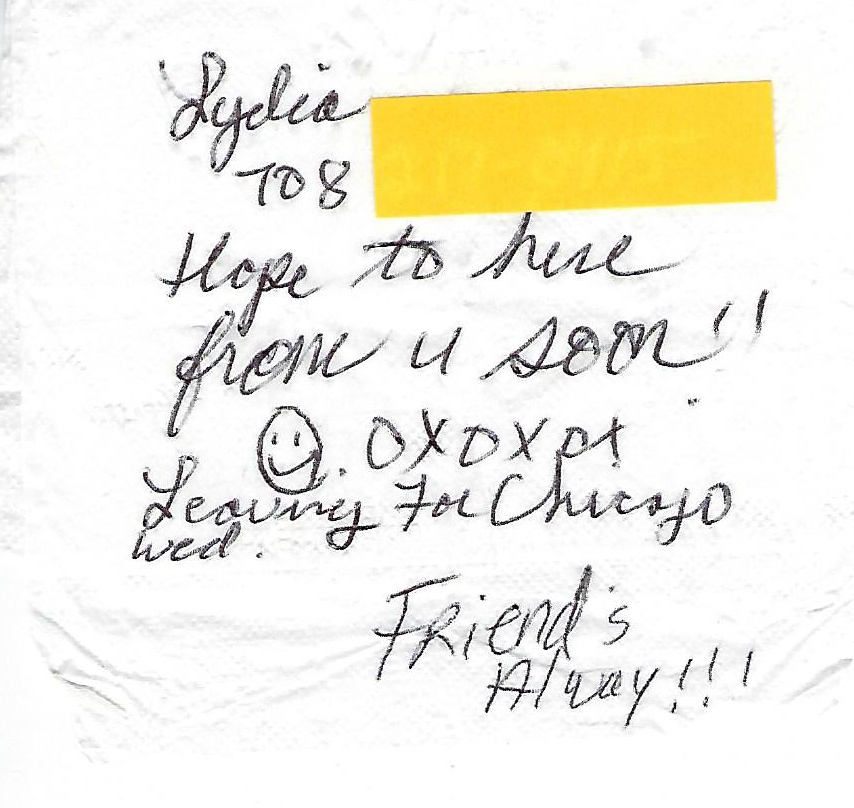 Lydia
708
Hope to here
from u soon!!
OXOXOX
Leaving For Chicago
Wed.
Friend's
Alway!!!